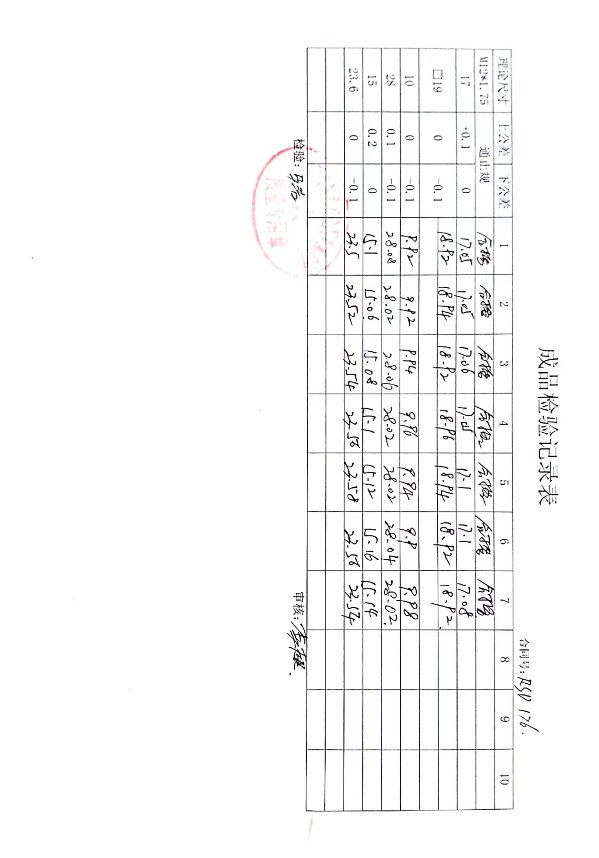 成品检验记录表
合同号: RSN 176.
理论尺寸 上公差 下公差 1 2 3 4 5 6 7 8 9 10
M12*1.75 通止规 合格 合格 合格 合格 合格 合格 合格
17 +0.1 0 17.05 17.05 17.06 17.05 17.1 17.1 17.08
□19 0 -0.1 18.92 18.94 18.92 18.96 18.94 18.92 18.92
10 0 -0.1 9.92 9.92 9.94 9.96 9.94 9.9 9.98
28 0.1 -0.1 28.08 28.02 28.06 28.02 28.02 28.04 28.02
15 0.2 0 15.1 15.06 15.08 15.1 15.12 15.16 15.14
23.6 0 -0.1 23.5 23.52 23.54 23.56 23.58 23.56 23.54
检验: 马浩 审核: